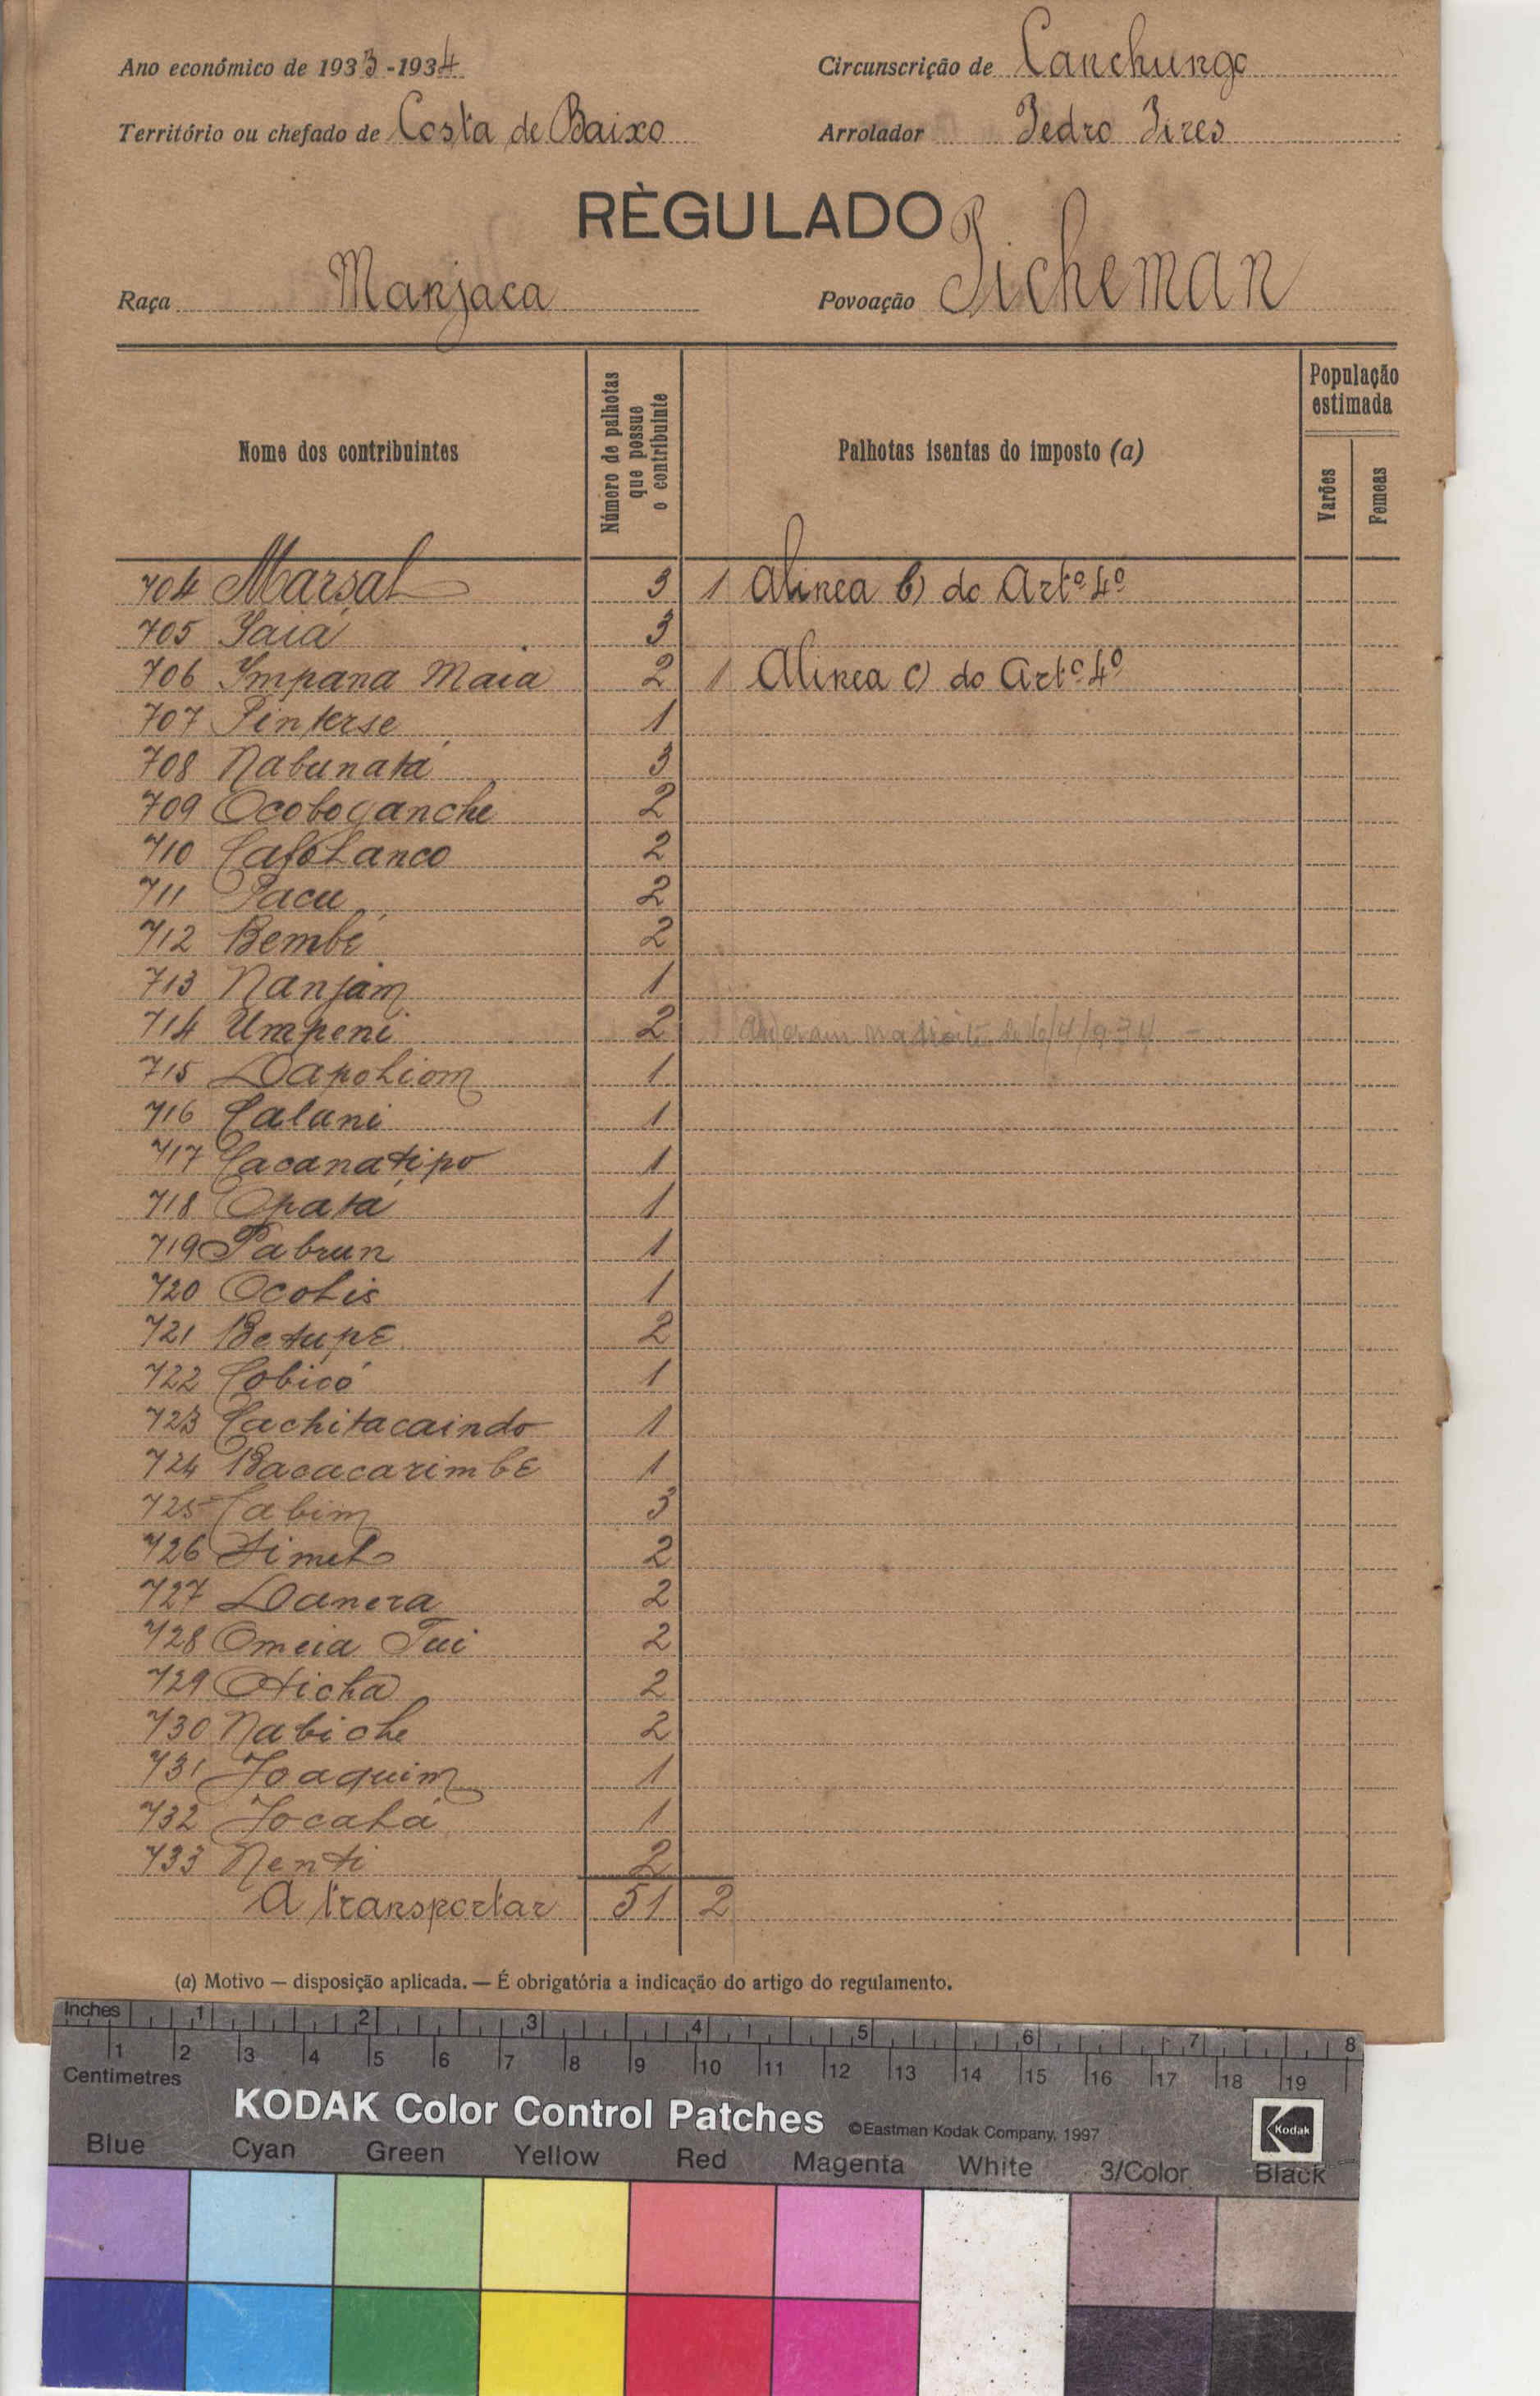 Ano económico de 1933-1934
Circunscrição de Canchungo
Território ou chefado de Costa de Baixo
Arrolador Pedro Pires
RÈGULADO
Raça Manjaca
Povoação Picheman
Nome dos contribuintes
Número de palhotas que possue o contribuinte
Palhotas isentas do imposto (a)
População estimada
Varões
Femeas
704 Marsal 3 1 Alinea b) do Artº 4º
705 Saiá 3
706 Impana Maia 2 1 Alinea c) do Artº 4º
707 Pinterse 1
708 Nabunatá 3
709 Ocoboganche 2
710 Cafolanco 2
711 Pacu 2
712 Bembé 2
713 Nanjam 1
714 Umpeni 2
715 Dapoliom 1
716 Calani 1
717 Cacanatipo 1
718 Opatá 1
719 Pabrun 1
720 Ocolis 1
721 Betupe 2
722 Cobicó 1
723 Cachitacaindo 1
724 Bacacarimbe 1
725 Cabim 3
726 Timel 2
727 Danera 2
728 Omeia Tui 2
729 Oticha 2
730 Nabiche 2
731 Joaquim 1
732 Jocalá 1
733 Nenti 2
A transportar 51 2
(a) Motivo — disposição aplicada. — É obrigatória a indicação do artigo do regulamento.
Inches 1 2 3 4 5 6 7 8
1 2 3 4 5 6 7 8 9 10 11 12 13 14 15 16 17 18 19
Centimetres
KODAK Color Control Patches ©Eastman Kodak Company, 1997
Kodak
Blue Cyan Green Yellow Red Magenta White 3/Color Black